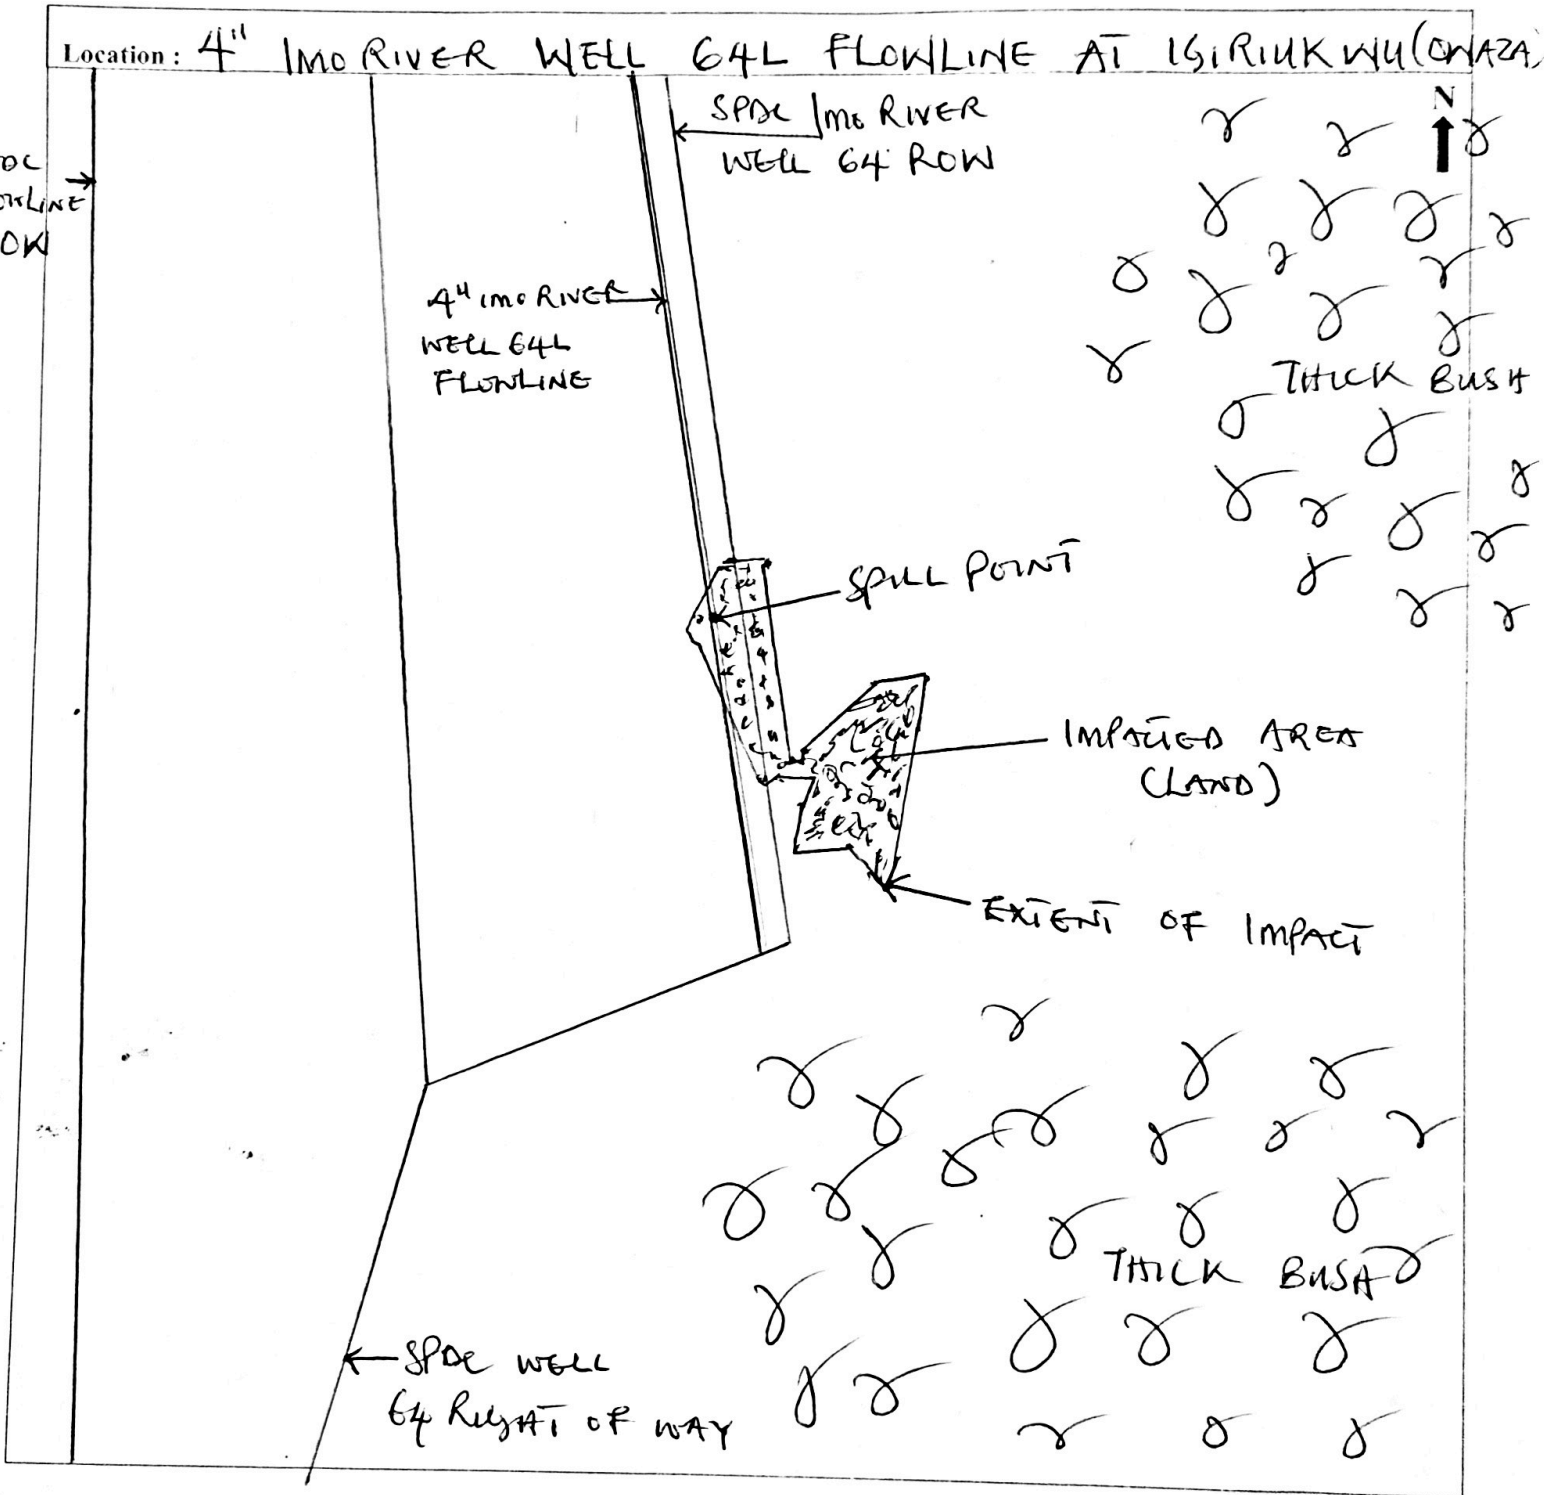 Location : 4" IMO RIVER WELL 64L FLOWLINE AT IGIRIUKWU (OWAZA)
N
SPDC IMO RIVER
WELL 64 ROW
DC
OWLINE
OW
4" IMO RIVER
WELL 64L
FLOWLINE
THICK BUSH
SPILL POINT
IMPACTED AREA
(LAND)
EXTENT OF IMPACT
THICK BUSH
SPDC WELL
64 RIGHT OF WAY